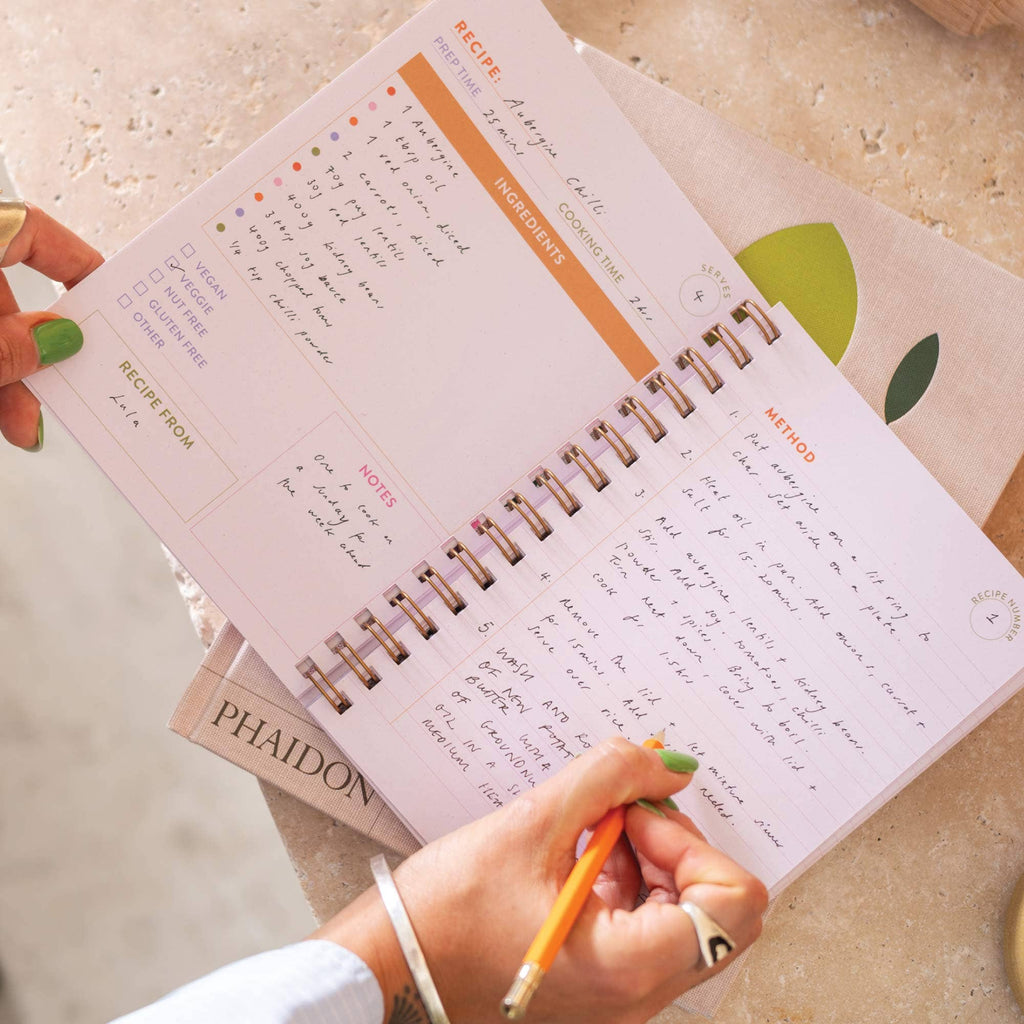 RECIPE: Aubergine Chilli
PREP TIME 25mins COOKING TIME 2hr
SERVES 4
INGREDIENTS
1 Aubergine
1 tbsp oil
1 red onion, diced
2 carrots, diced
70g puy lentils
30g red lentils
400g kidney beans
3 tbsp soy sauce
400g chopped toms
1/4 tsp chilli powder
VEGAN
VEGGIE
NUT FREE
GLUTEN FREE
OTHER
RECIPE FROM
Lula
NOTES
One to cook on
a Sunday for
the week ahead
METHOD
RECIPE NUMBER
1
1. Put aubergine on a lit ring to
char. Set aside on a plate.
2. Heat oil in pan. Add onions, carrot +
salt for 15-20mins.
3. Add aubergine, lentils + kidney bean.
Stir. Add soy, tomatoes, chilli
powder + spices. Bring to boil.
Turn heat down, cover with lid +
cook for 1.5hrs
4. Remove the lid + let mixture simmer
for 15mins. Add if needed.
Serve over rice
5. WASH AND
OF NEW
BUTTER WITH
OF
OIL IN A
MEDIUM
PHAIDON